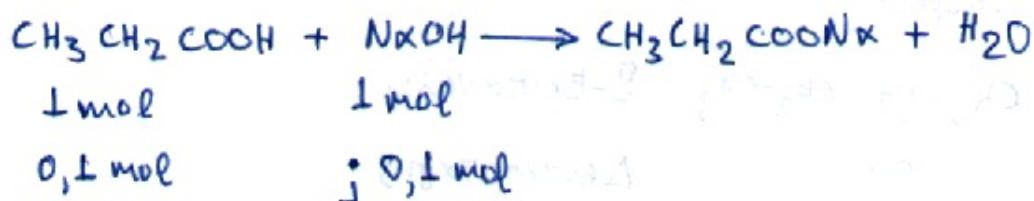 CH₃CH₂COOH + NaOH ⟶ CH₃CH₂COONa + H₂O
1 mol 1 mol
0,1 mol ; 0,1 mol